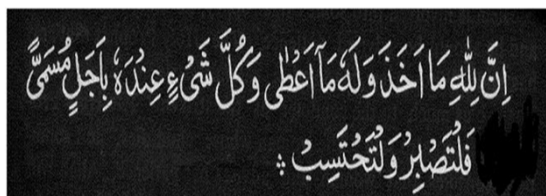 اِنَّ لِلّٰهِ مَا اَخَذَ وَلَهٗ مَآ اَعْطٰی وَکُلَّ شَیْءٍ عِنْدَهٗ بِاَجَلٍ مُسَمًّی
فَلْتَصْبِرْ وَلْتَحْتَسِبْ